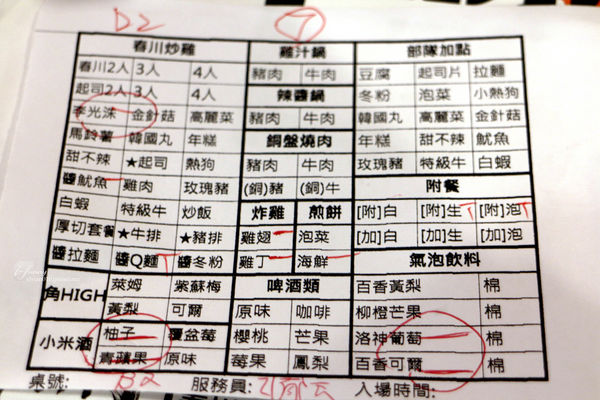 D2 7
春川炒雞 雞汁鍋 部隊加點
春川2人 3人 4人 豬肉 牛肉 豆腐 起司片 拉麵
起司2人 3人 4人 辣醬鍋 冬粉 泡菜 小熱狗
李光洙 金針菇 高麗菜 豬肉 牛肉 韓國丸 高麗菜 金針菇
馬鈴薯 韓國丸 年糕 銅盤燒肉 年糕 甜不辣 魷魚
甜不辣 ★起司 熱狗 豬肉 牛肉 玫瑰豬 特級牛 白蝦
醬魷魚 雞肉 玫瑰豬 (銅)豬 (銅)牛 附餐
白蝦 特級牛 炒飯 炸雞 煎餅 [附]白 [附]生 [附]泡
厚切套餐 ★牛排 ★豬排 雞翅 泡菜 [加]白 [加]生 [加]泡
醬拉麵 醬Q麵 醬冬粉 雞丁 海鮮 氣泡飲料
角HIGH 萊姆 紫蘇梅 啤酒類 百香黃梨 棉
黃梨 可爾 原味 咖啡 柳橙芒果 棉
小米酒 柚子 覆盆莓 櫻桃 芒果 洛神葡萄 棉
青蘋果 原味 莓果 鳳梨 百香可爾 棉
桌號: B2 服務員: 入場時間: